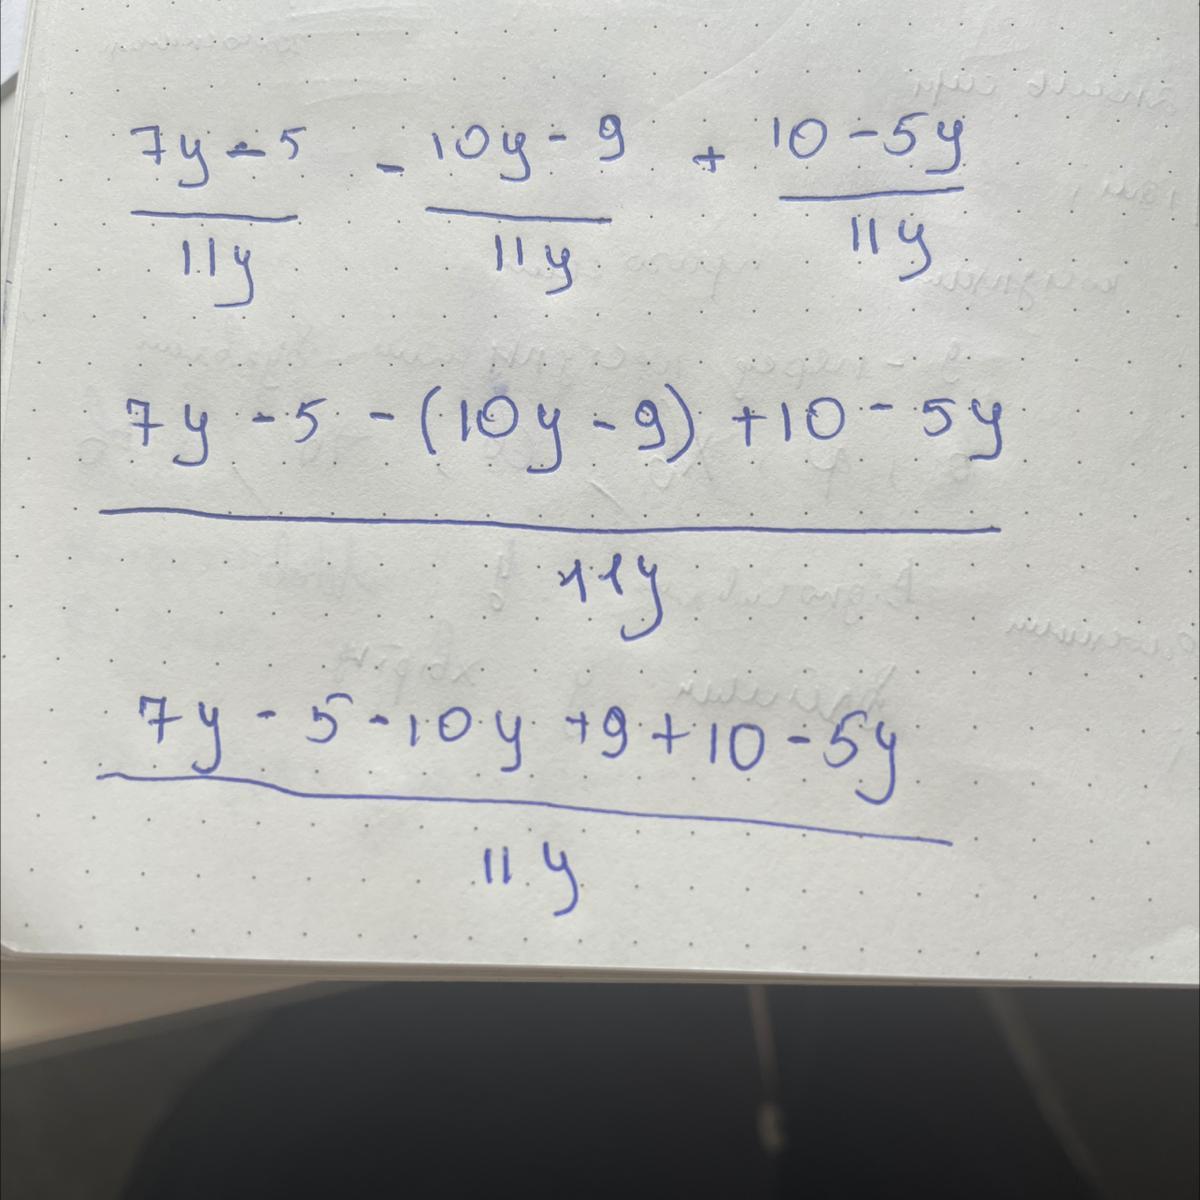 7y - 5 - 10y - 9 + 10 - 5y
11y 11y 11y
7y - 5 - (10y - 9) + 10 - 5y
11y
7y - 5 - 10y + 9 + 10 - 5y
11y